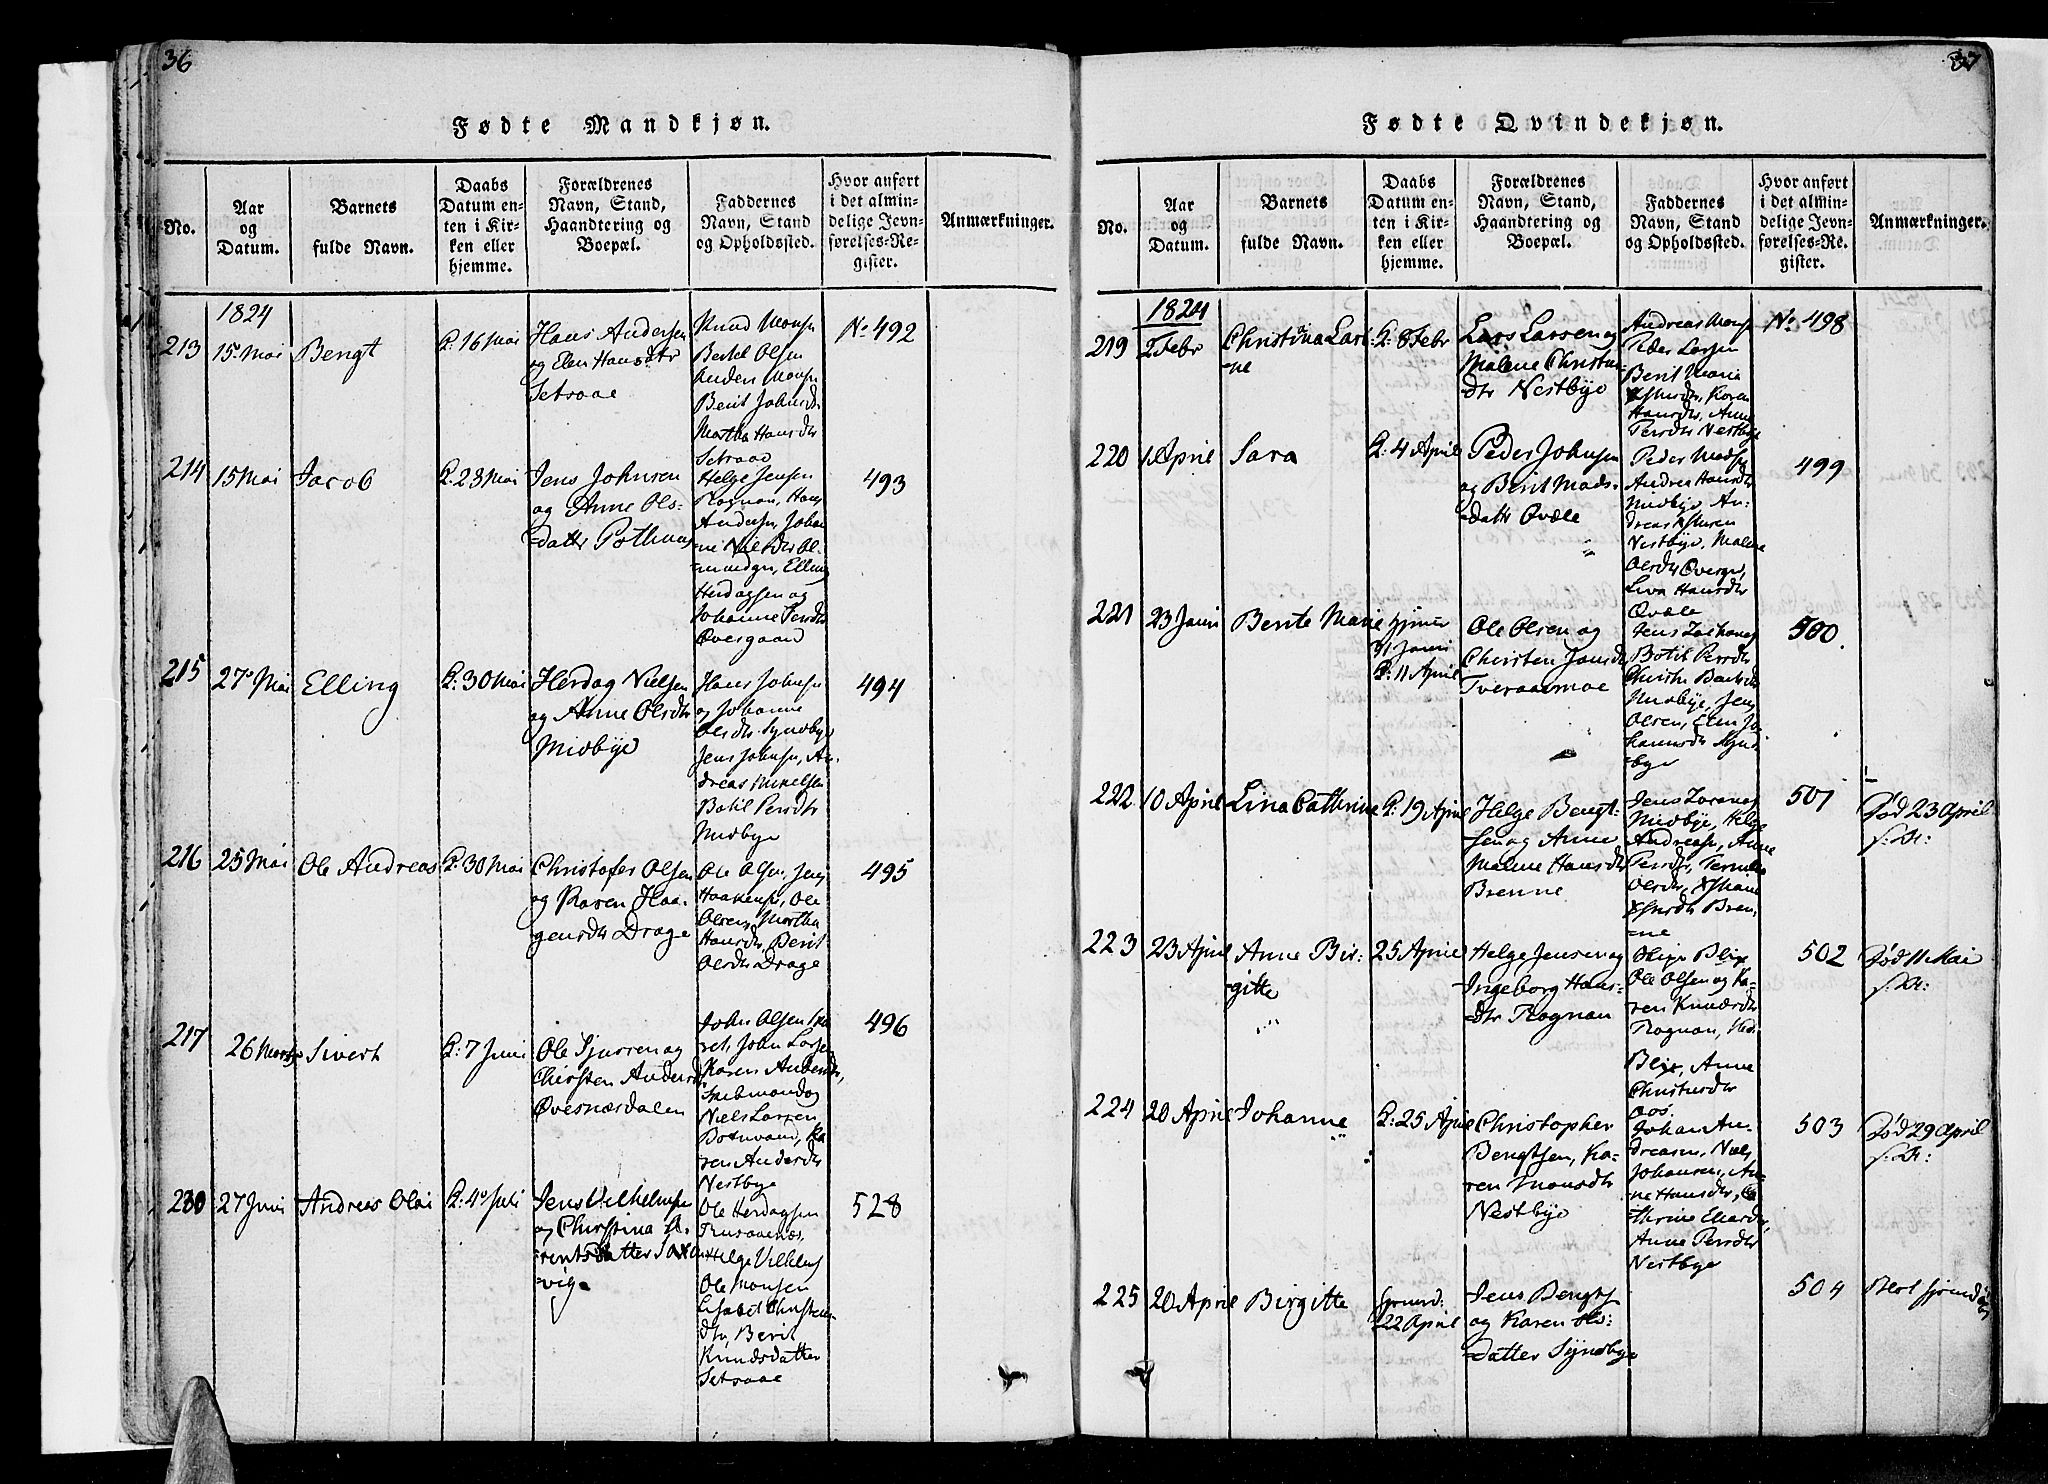 36
Fødte Mandkjøn.
No.
Aar
og
Datum.
Barnets
fulde Navn.
Daabs
Datum en-
ten i Kir-
ken eller
hjemme.
Forældrenes
Navn, Stand,
Haandtering og
Boepæl.
Faddernes
Navn, Stand
og Opholdssted.
Hvor anført
i det almin-
delige Jevn-
førelses-Re-
gister.
Anmærkninger.
1824
213
15 Mai
Bengt
K: 16 Mai
Hans Andersen
og Elen Hansdtr
Setraae
Knud Monsen
Bertel Olsen
Anders Monsen
Berit Johnsdtr
Martha Hansdtr
Setraae
No 492
214
15 Mai
Jacob
K: 23 Mai
Jens Johnsen
og Anne Ols-
datter Pothuus
Helge Jensen
Rognan, Hans
Andersen, Johan-
ne Nielsdtr
Elling
Herdagsen og
Johanne Persdtr
Øvergaard
493
215
27 Mai
Elling
K: 30 Mai
Herdag Nielsen
og Anne Olsdtr
Midbye
Hans Johnsen
og Johanne
Olsdtr Syndbye
Jens Johnsen, An-
dreas Mikelsen
Botil Persdtr
Midbye
494
216
25 Mai
Ole Andreas
K: 30 Mai
Christofer Olsen
og Karen Haa-
gensdtr Drage
Ole Olsen, Jens
Haakensen, Ole
Olsen, Martha
Hansdtr, Berit
Olsdtr Drage
495
217
26 Marts
Sivert
K: 7 Juni
Ole Sjursen og
Chirsten Andersdtr
Øvesnæsdalen
John Olsen
John Larsen
Karen Andersdtr,
og
Niels Larsen
Botnvand, Ka-
ren Andersdtr
Nestbye
496
230
27 Juni
Andreas Olai
K: 4 Juli
Jens Vilhelmsen
og Chirstina A-
rentsdatter Saxen-
vig
Ole Herdagsen
Helge Vilhelms
Ole Monsen
Lisabet Christens-
dtr, Berit
Knudsdatter
Setraae
528
37
Fødte Qvindekjøn.
No.
Aar
og
Datum.
Barnets
fulde Navn.
Daabs
Datum en-
ten i Kir-
ken eller
hjemme.
Forældrenes
Navn, Stand,
Haandtering og
Boepæl.
Faddernes
Navn, Stand
og Opholdssted.
Hvor anført
i det almin-
delige Jevn-
førelses-Re-
gister.
Anmærkninger.
1824
219
2 Febr
Christina Lari-
ne
K: 8 Febr
Lars Larsen og
Malene Christens-
dtr Nestbye
Andreas Monsen
Peder Larsen
Berit Marie
Karen
Hansdtr, Anne
Persdtr Nestbye
No 498
220
1 April
Sara
K: 4 April
Peder Johnsen
og Berit Mads-
datter Qvæle
Peder Madsen
Andrea Hansdtr
Midbye, An-
dreas
Nestbye, Malene
Olsdtr
Hansdtr
Qvæle
499
221
23 Januari
Bente Marie
hjemme
31 Januari
K: 11 April
Ole Olsen og
Chirsten Jonsdtr
Tveraamoe
Jens Zacharias
Botil Persdtr
Midbye, Jens
Olsen, Elen Jo-
hansdtr Synd-
bye
500
222
10 April
Lina Cathrine
K: 19 April
Helge Bengt-
sen og Anne
Malene Hansdtr
Brenne
Jens Zacharias
Midbye, Helge
Andreasen, Anne
Persdtr,
Olsdtr,
Bren-
ne
501
Død 23 April
s: A:
223
23 April
Anne Bir-
gitte
25 April
Helge Jensen og
Ingeborg Hans-
dtr Rognan
Blix
Ole Olsen og Ka-
ren Knudsdtr
Rognan,
Blix, Anne
Christensdtr
Aas.
502
Død 11 Mai
s: A:
224
20 April
Johanne
K: 25 April
Christopher
Bengtsen, Ka-
ren Monsdtr
Nestbye
Johan An-
dreasen, Niels
Johansen, An-
ne Hansdtr, Ca-
thrine Eliasdtr
Anne Persdtr
Nestbye
503
Død 29 April
s: A:
225
20 April
Birgitte
22 April
Jens Bengts
og Karen Ols-
datter Syndbye
504